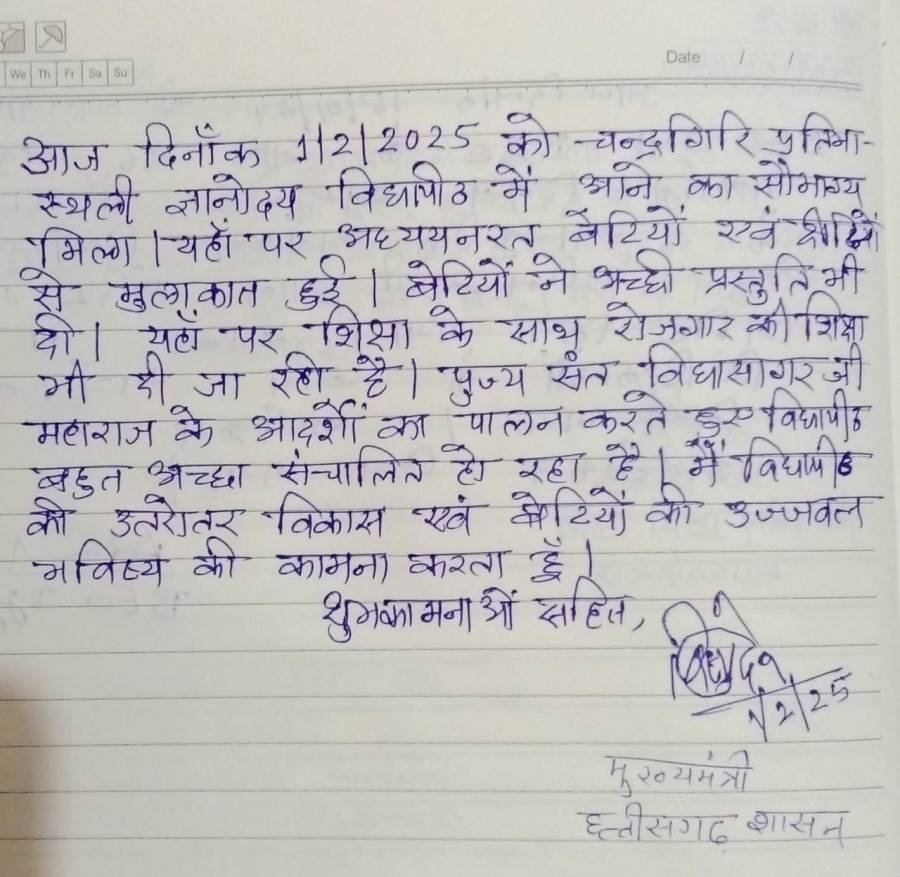 We Th Fr Sa Su
Date / /
आज दिनाँक 1/2/2025 को चन्द्रगिरि प्रतिभा-
स्थली ज्ञानोदय विद्यापीठ में आने का सौभाग्य
मिला। यहाँ पर अध्ययनरत बेटियों एवं दीदियों
से मुलाकात हुई। बेटियों ने अच्छी प्रस्तुति भी
दी। यहाँ पर शिक्षा के साथ रोजगार की शिक्षा
भी दी जा रही है। पुज्य संत विद्यासागर जी
महाराज के आदर्शों का पालन करते हुए विद्यापीठ
बहुत अच्छा संचालित हो रहा है। मैं विद्यापीठ
की उतरोतर विकास एवं बेटियों की उज्जवल
भविष्य की कामना करता हूँ।
शुभकामनाओं सहित,
1/2/25
मुख्यमंत्री
छत्तीसगढ़ शासन